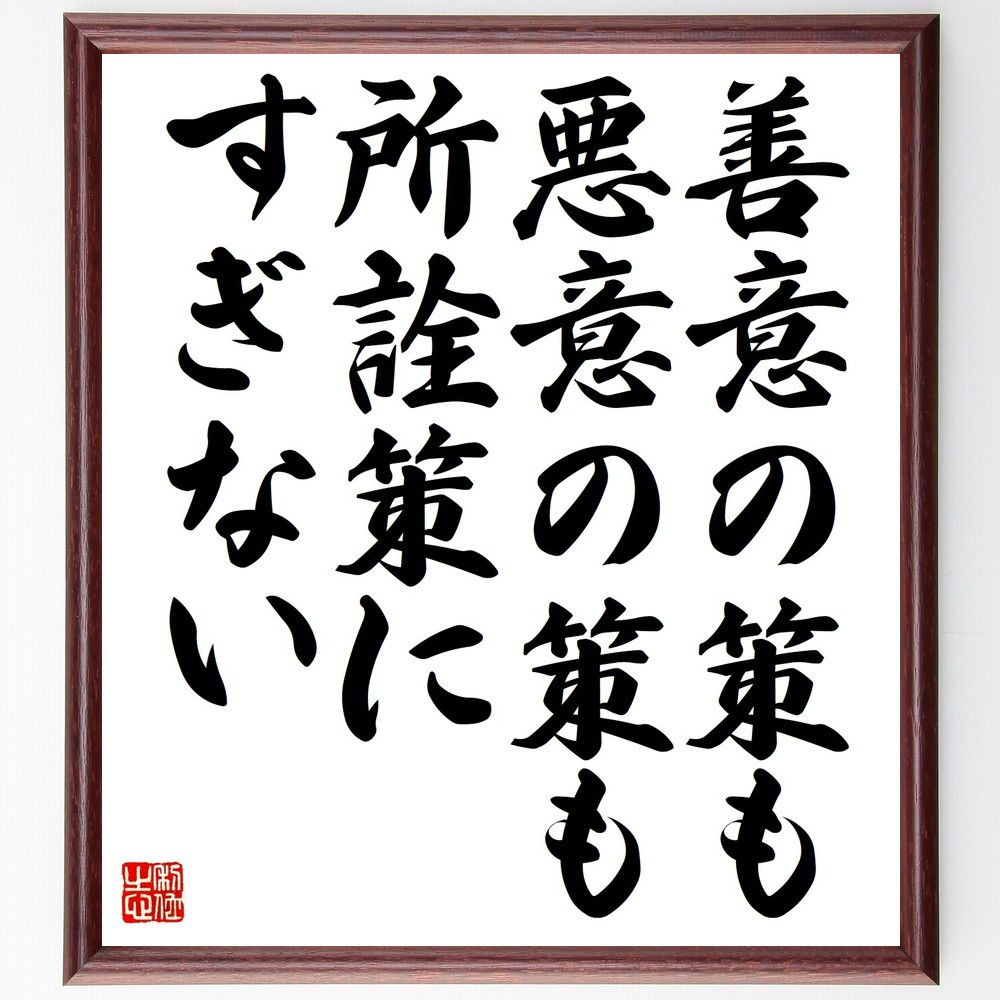 善意の策も
悪意の策も
所詮策に
すぎない